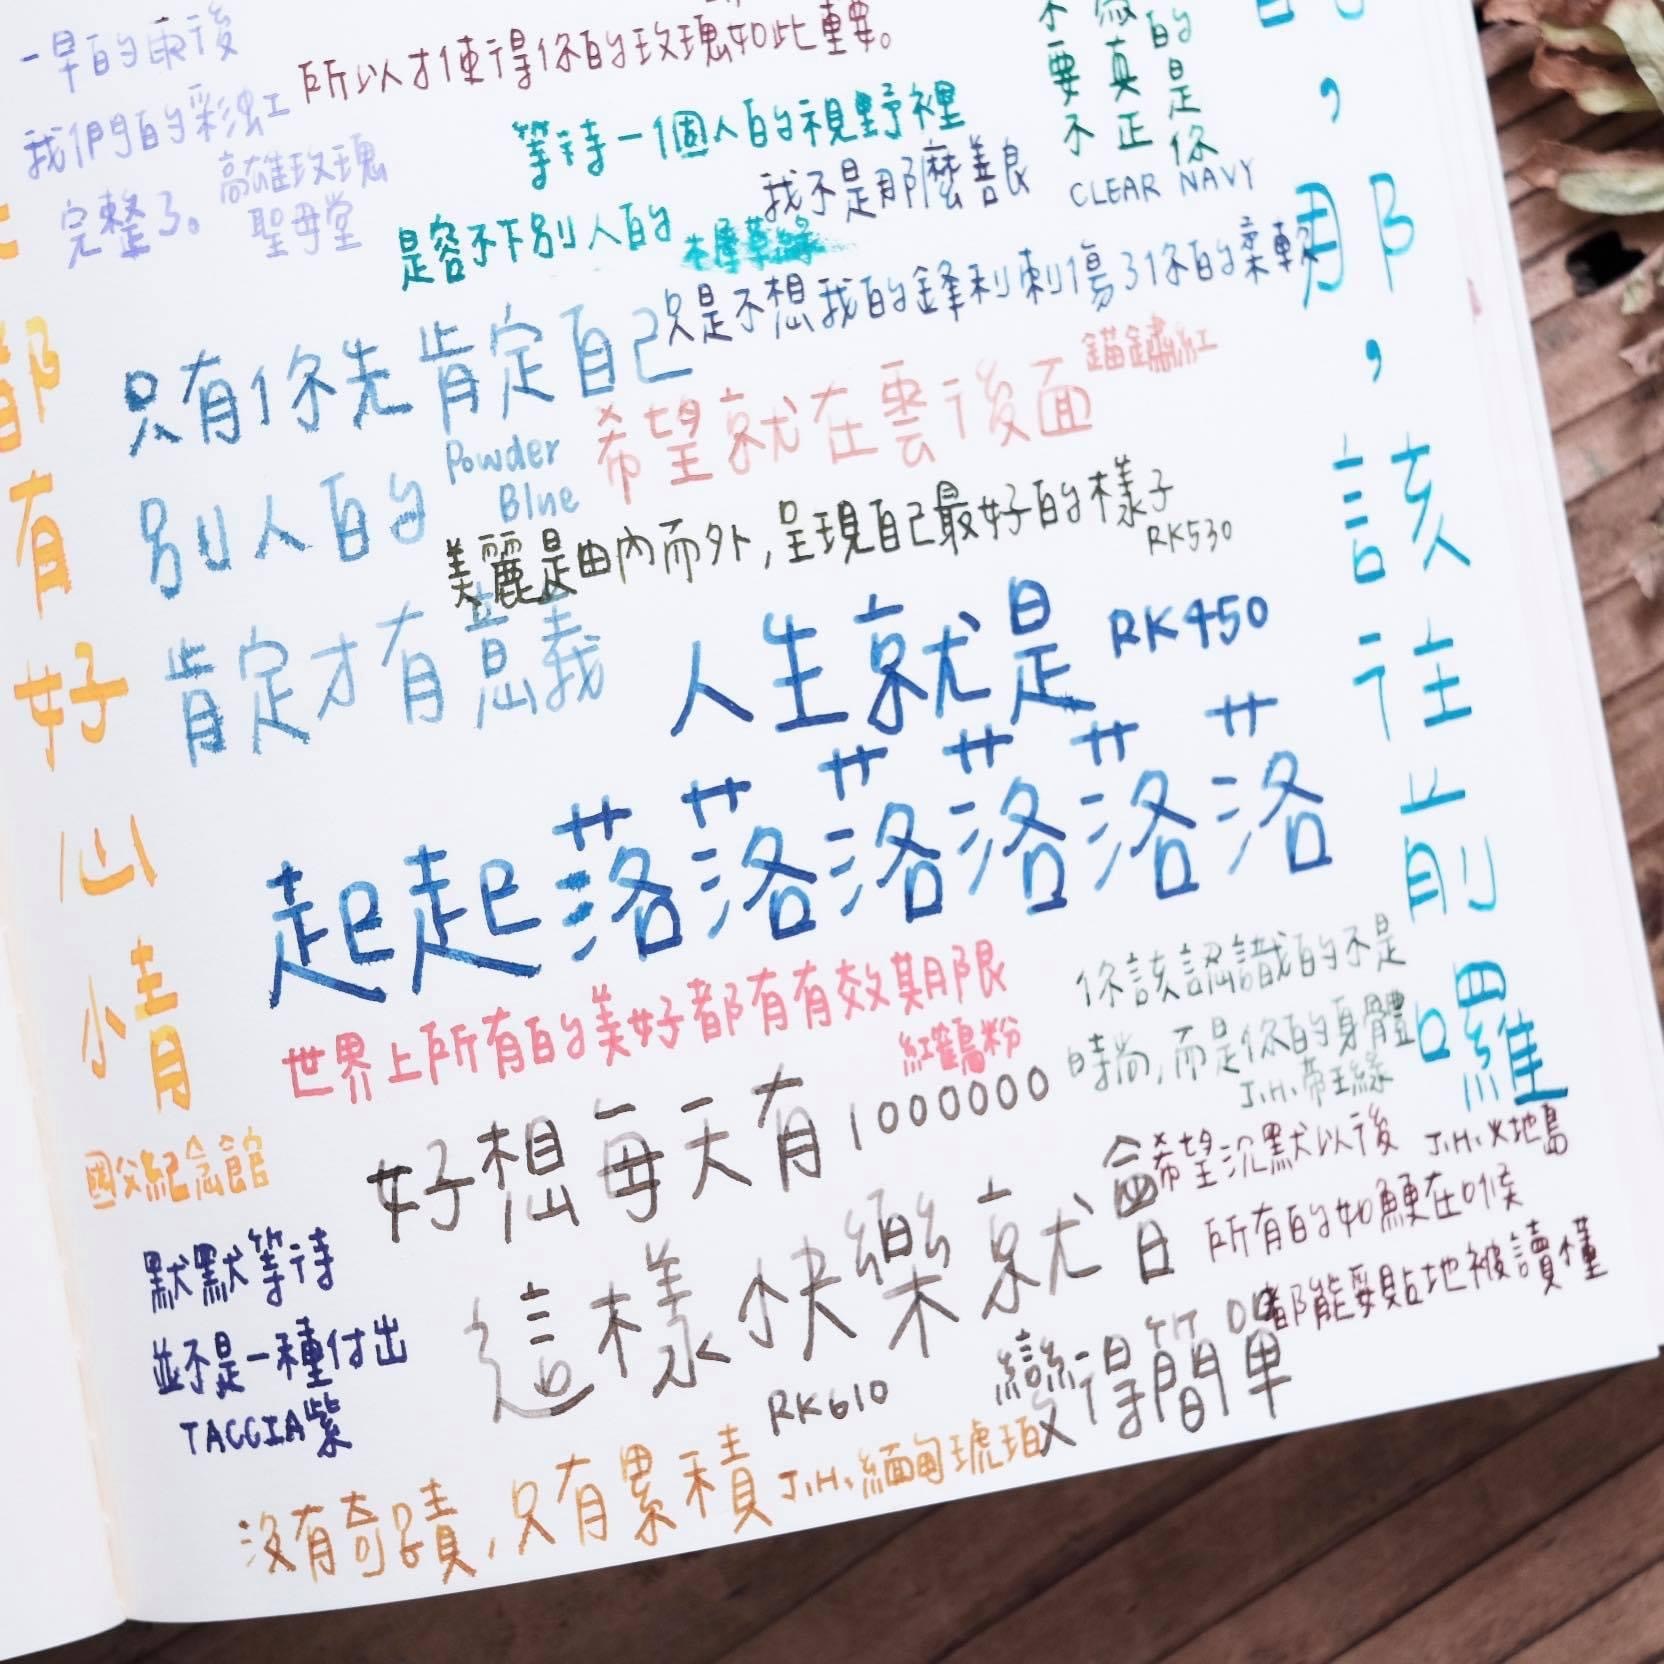 所以才使得你的玫瑰如此重要。
我們的彩虹
完整了。
高雄玫瑰
聖母堂
等待一個人的視野裡
是容不下別人的
要真是
不正你
CLEAR NAVY
我不是那麼善良
只是不想我的鋒利刺傷了你的柔軟
只有你先肯定自己
別人的
肯定才有意義
Powder
Blue
希望就在雲後面
錨鏽紅
美麗是由內而外,呈現自己最好的樣子
RK530
人生就是
RK450
起起落落落落落落
,那,該往前囉
都有好心情
國父紀念館
世界上所有的美好都有有效期限
紅鶴粉
你該認識的不是
時尚,而是你的身體
J.H.帝王綠
好想每天有1000000
這樣快樂就會
變得簡單
RK610
希望沉默以後
J.H.火地島
所有的如鯁在喉
都能妥貼地被讀懂
默默等待
並不是一種付出
TACCIA紫
沒有奇蹟,只有累積
J.H.緬甸琥珀